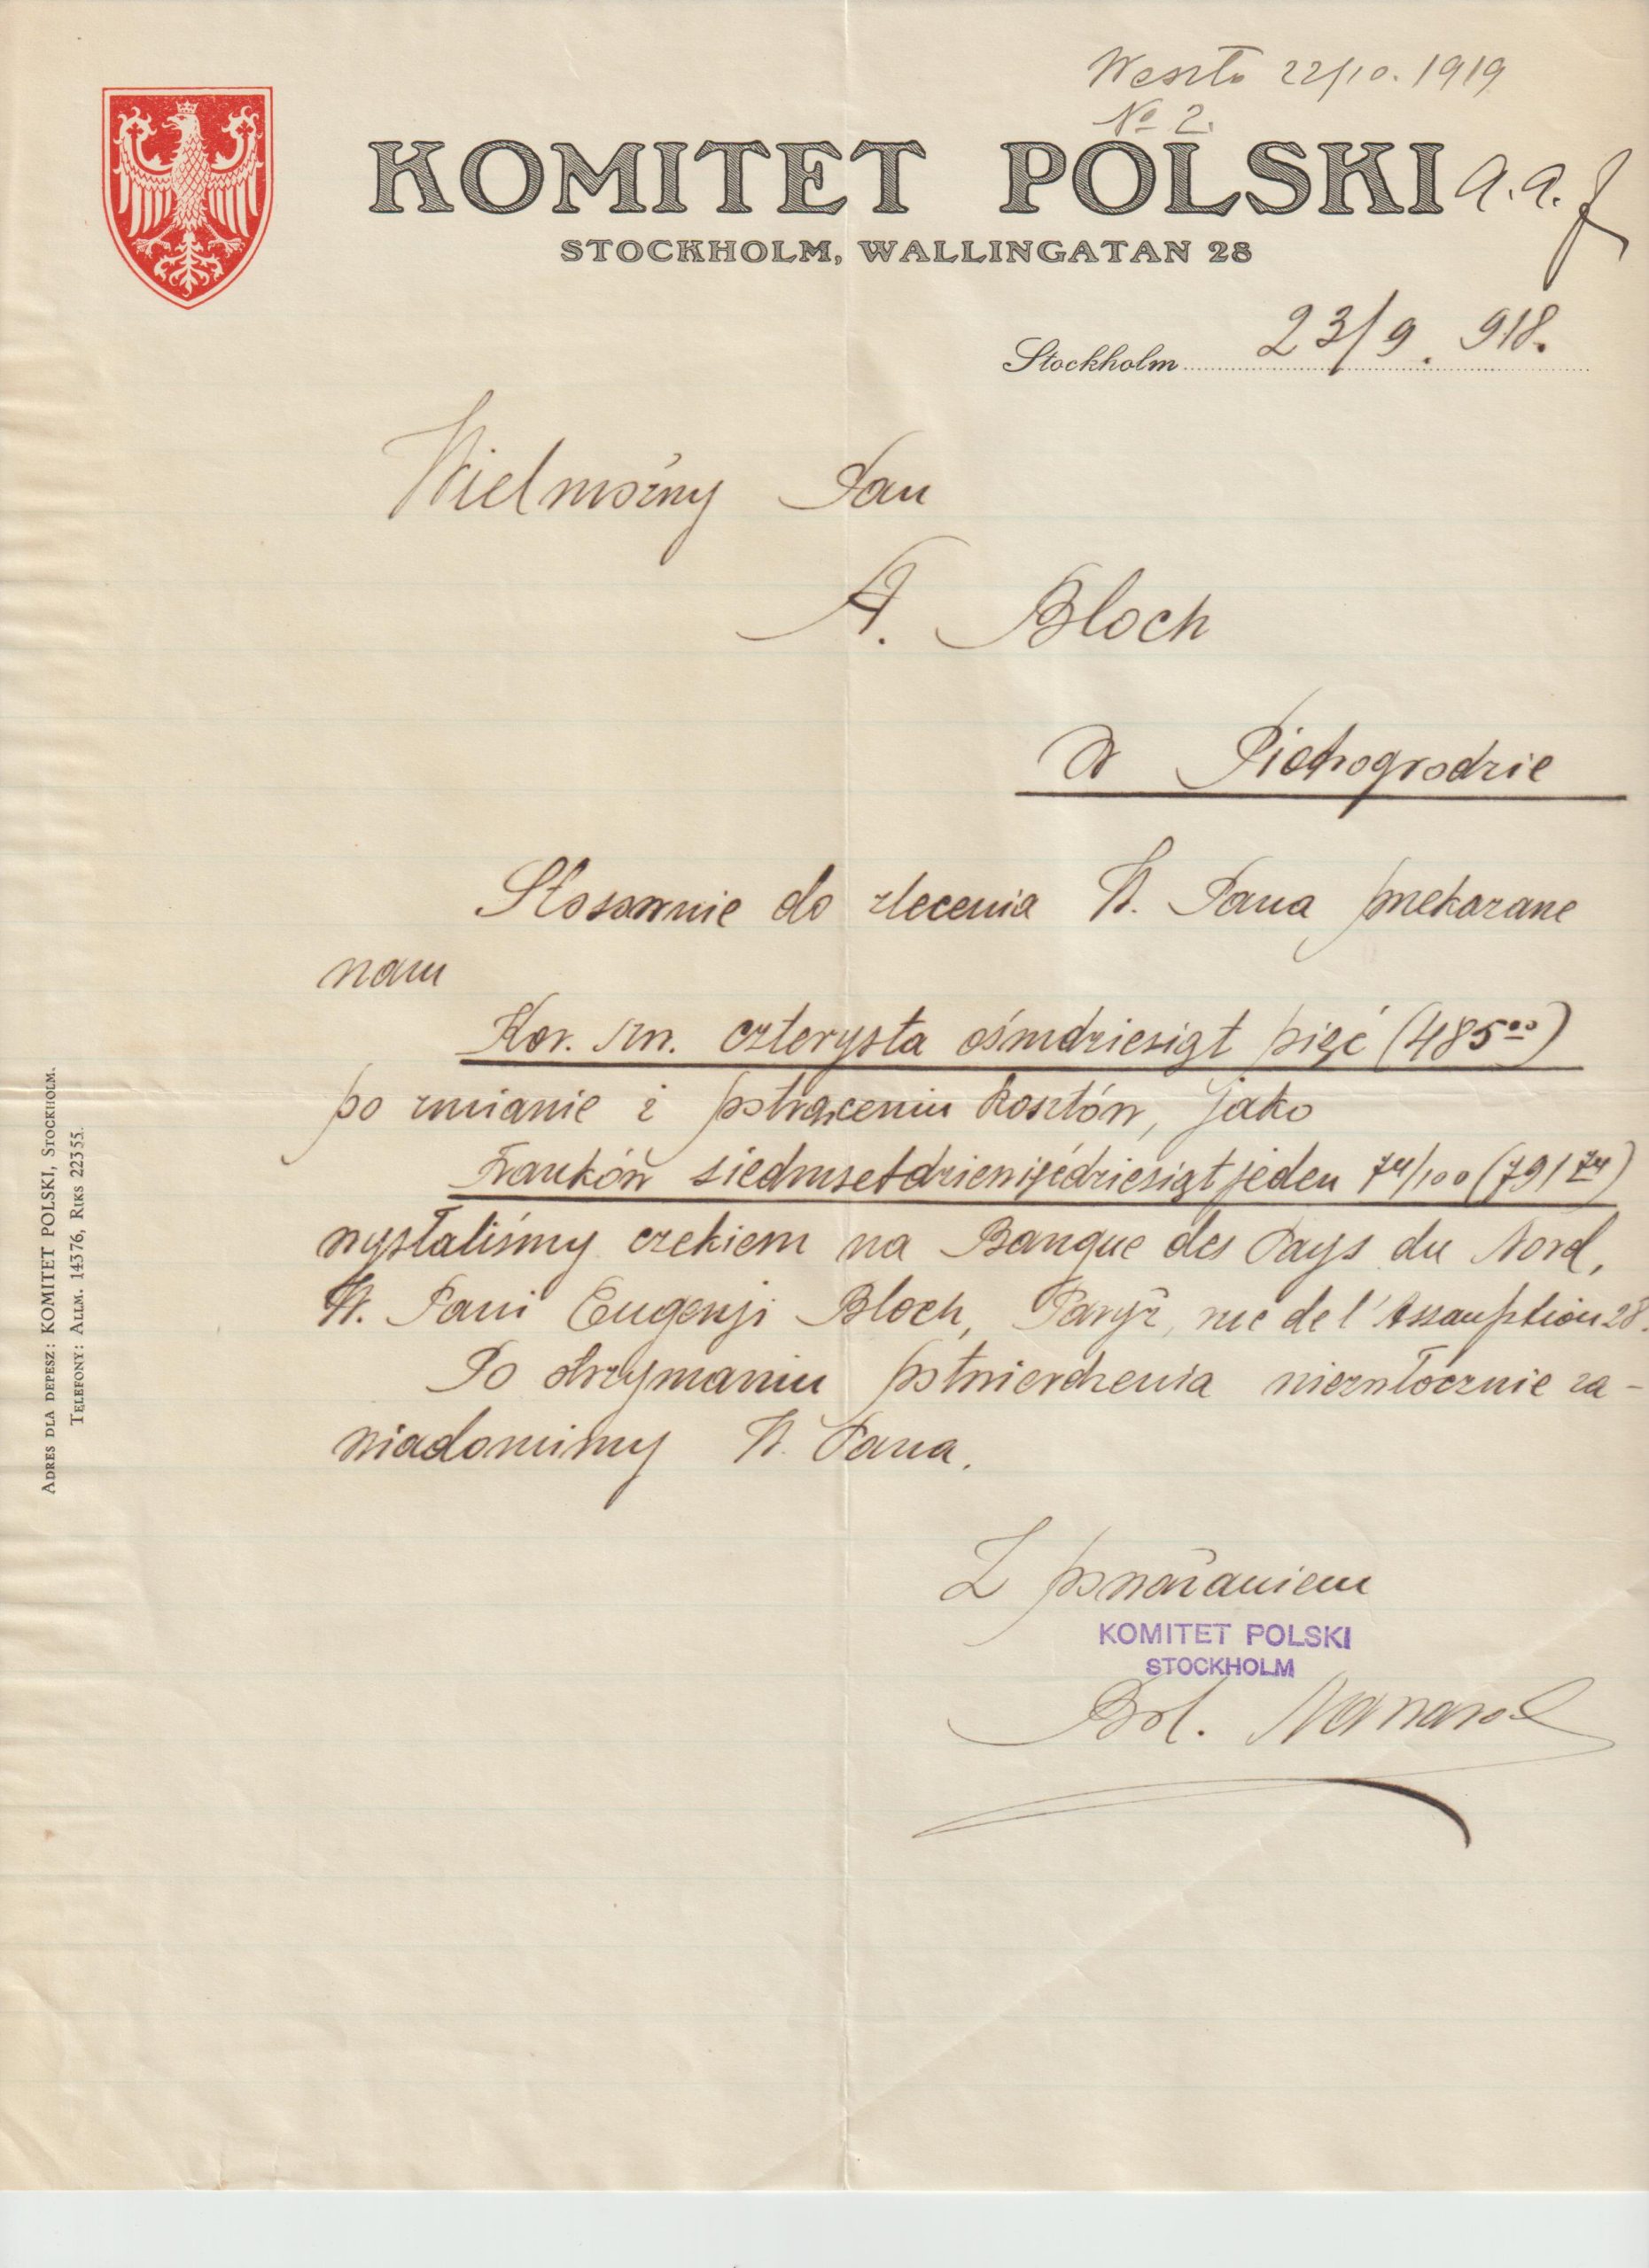 Weszło 22/10. 1919
No 2.
KOMITET POLSKI
a.a.
STOCKHOLM, WALLINGATAN 28
Stockholm 23/9. 918.
Wielmożny Pan
A. Bloch
w Piotrogrodzie
Stosownie do zlecenia W. Pana przekazane
nam
Kor. szw. czterysta ośmdziesiąt pięć (485⁰⁰)
po zmianie i potrąceniu kosztów, jako
Franków siedmsetdziewięćdziesiąt jeden 74/100 (791⁷⁴)
wysłaliśmy czekiem na Banque des Pays du Nord,
W. Pani Eugenji Bloch, Paryż, rue de l'Assauption 28.
Po otrzymaniu potwierdzenia niezwłocznie za-
wiadomimy W. Pana.
Z poważaniem
KOMITET POLSKI
STOCKHOLM
Bol.
ADRES DLA DEPESZ: KOMITET POLSKI, STOCKHOLM.
TELEFONY: ALLM. 14376, RIKS 22355.